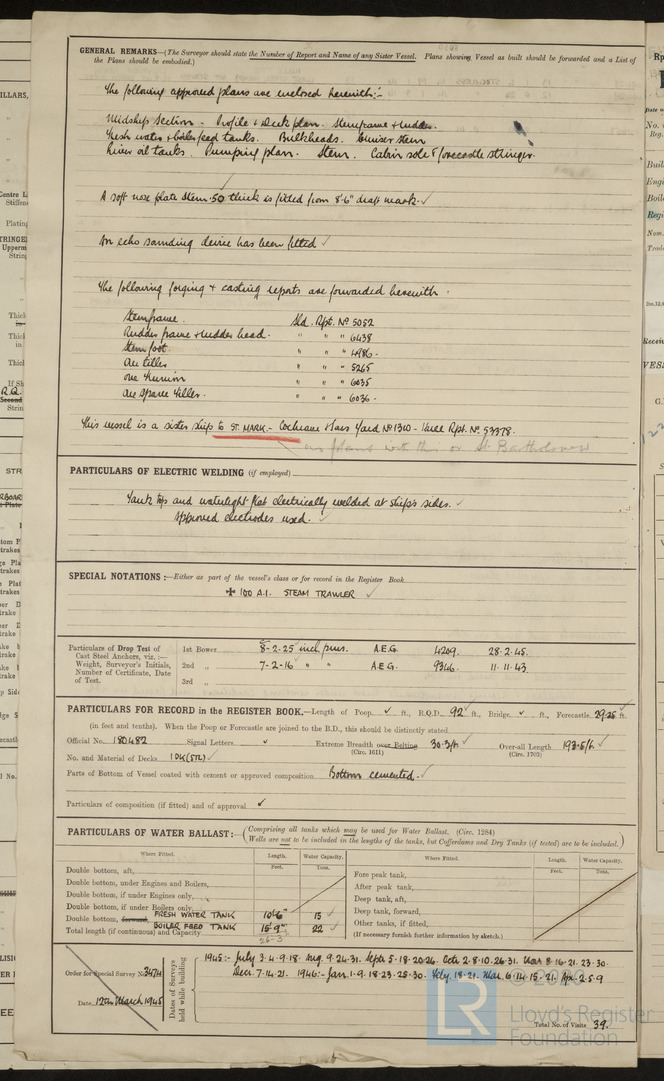 GENERAL REMARKS—(The Surveyor should state the Number of Report and Name of any Sister Vessel. Plans showing Vessel as built should be forwarded and a List of
the Plans should be embodied.)
The following approved plans are enclosed herewith:-
Midship Section - Profile & Deck plan. Sternframe & rudder.
Fresh water & boiler feed tanks. Bulkheads. Cruiser stern
River oil tanks. Pumping plan. Stem. Cabin sole & forecastle stringer.
A soft nose plate stem .50 thick is fitted from 8'6" draft mark. ✓
An echo sounding device has been fitted ✓
The following forging & casting reports are forwarded herewith.
Sternframe. Sld. Rpt. No 5052
Rudder frame & rudder head. " " " 6438
Stern foot. " " " 4986.
One tiller " " " 5265
" " " 6035
One spare tiller. " " " 6036.
This vessel is a sister ship to ST. MARK - Cochrane & Sons Yard No 1310 - Hull Rpt. No. 53378.
as plans with this or St Bartholomew
PARTICULARS OF ELECTRIC WELDING (if employed)
Tank tops and watertight flat electrically welded at ship's sides. ✓
Approved electrodes used. ✓
SPECIAL NOTATIONS:—Either as part of the vessel's class or for record in the Register Book
✠ 100 A.1. STEAM TRAWLER ✓
Particulars of Drop Test of
Cast Steel Anchors, viz.:—
Weight, Surveyor's Initials,
Number of Certificate, Date
of Test.
1st Bower 8-2-25 A.E.G. 4209. 28.2.45.
2nd " 7-2-16 " " A.E.G. 9346. 11.11.43.
3rd "
PARTICULARS FOR RECORD in the REGISTER BOOK.—Length of Poop ✓ ft., R.Q.D. 92 ft., Bridge ✓ ft., Forecastle 29.25 ft.
(in feet and tenths). When the Poop or Forecastle are joined to the B.D., this should be distinctly stated
Official No. 180482 Signal Letters ✓ Extreme Breadth over Belting 30.3/4 ✓ Over-all Length 193.5/6 ✓
(Circ. 1611) (Circ. 1703)
No. and Material of Decks 1DK(STL) ✓
Parts of Bottom of Vessel coated with cement or approved composition Bottom cemented. ✓
Particulars of composition (if fitted) and of approval ✓
PARTICULARS OF WATER BALLAST:—(Comprising all tanks which may be used for Water Ballast. (Circ. 1284)
Wells are not to be included in the lengths of the tanks, but Cofferdams and Dry Tanks (if tested) are to be included.)
Where Fitted. Length. Water Capacity. Where Fitted. Length. Water Capacity.
Feet. Tons. Feet. Tons.
Double bottom, aft,
Double bottom, under Engines and Boilers,
Double bottom, if under Engines only,
Double bottom, if under Boilers only,
Double bottom, forward, FRESH WATER TANK 10'6" 15 ✓
Total length (if continuous) and Capacity BOILER FEED TANK 15'9" 22 ✓
26-3
Fore peak tank,
After peak tank,
Deep tank, aft,
Deep tank, forward,
Other tanks, if fitted,
(If necessary furnish further information by sketch.)
Order for Special Survey No. 3474
Date 12th March 1945
Dates of Surveys
held while building
1945:- July 3.4.9.18. Aug. 9.24.31. Septr 5.18.20.26. Octr 2.8.10.26.31. Nov 8.16.21.23.30.
Decr. 7.14.21. 1946:- Jan. 1.9.18.23.25.30. Feby 18.21. Mar. 6.14.15.21. Apr. 2.5.9
Total No. of Visits 39.
© 2020
LR
Lloyd's Register
Foundation